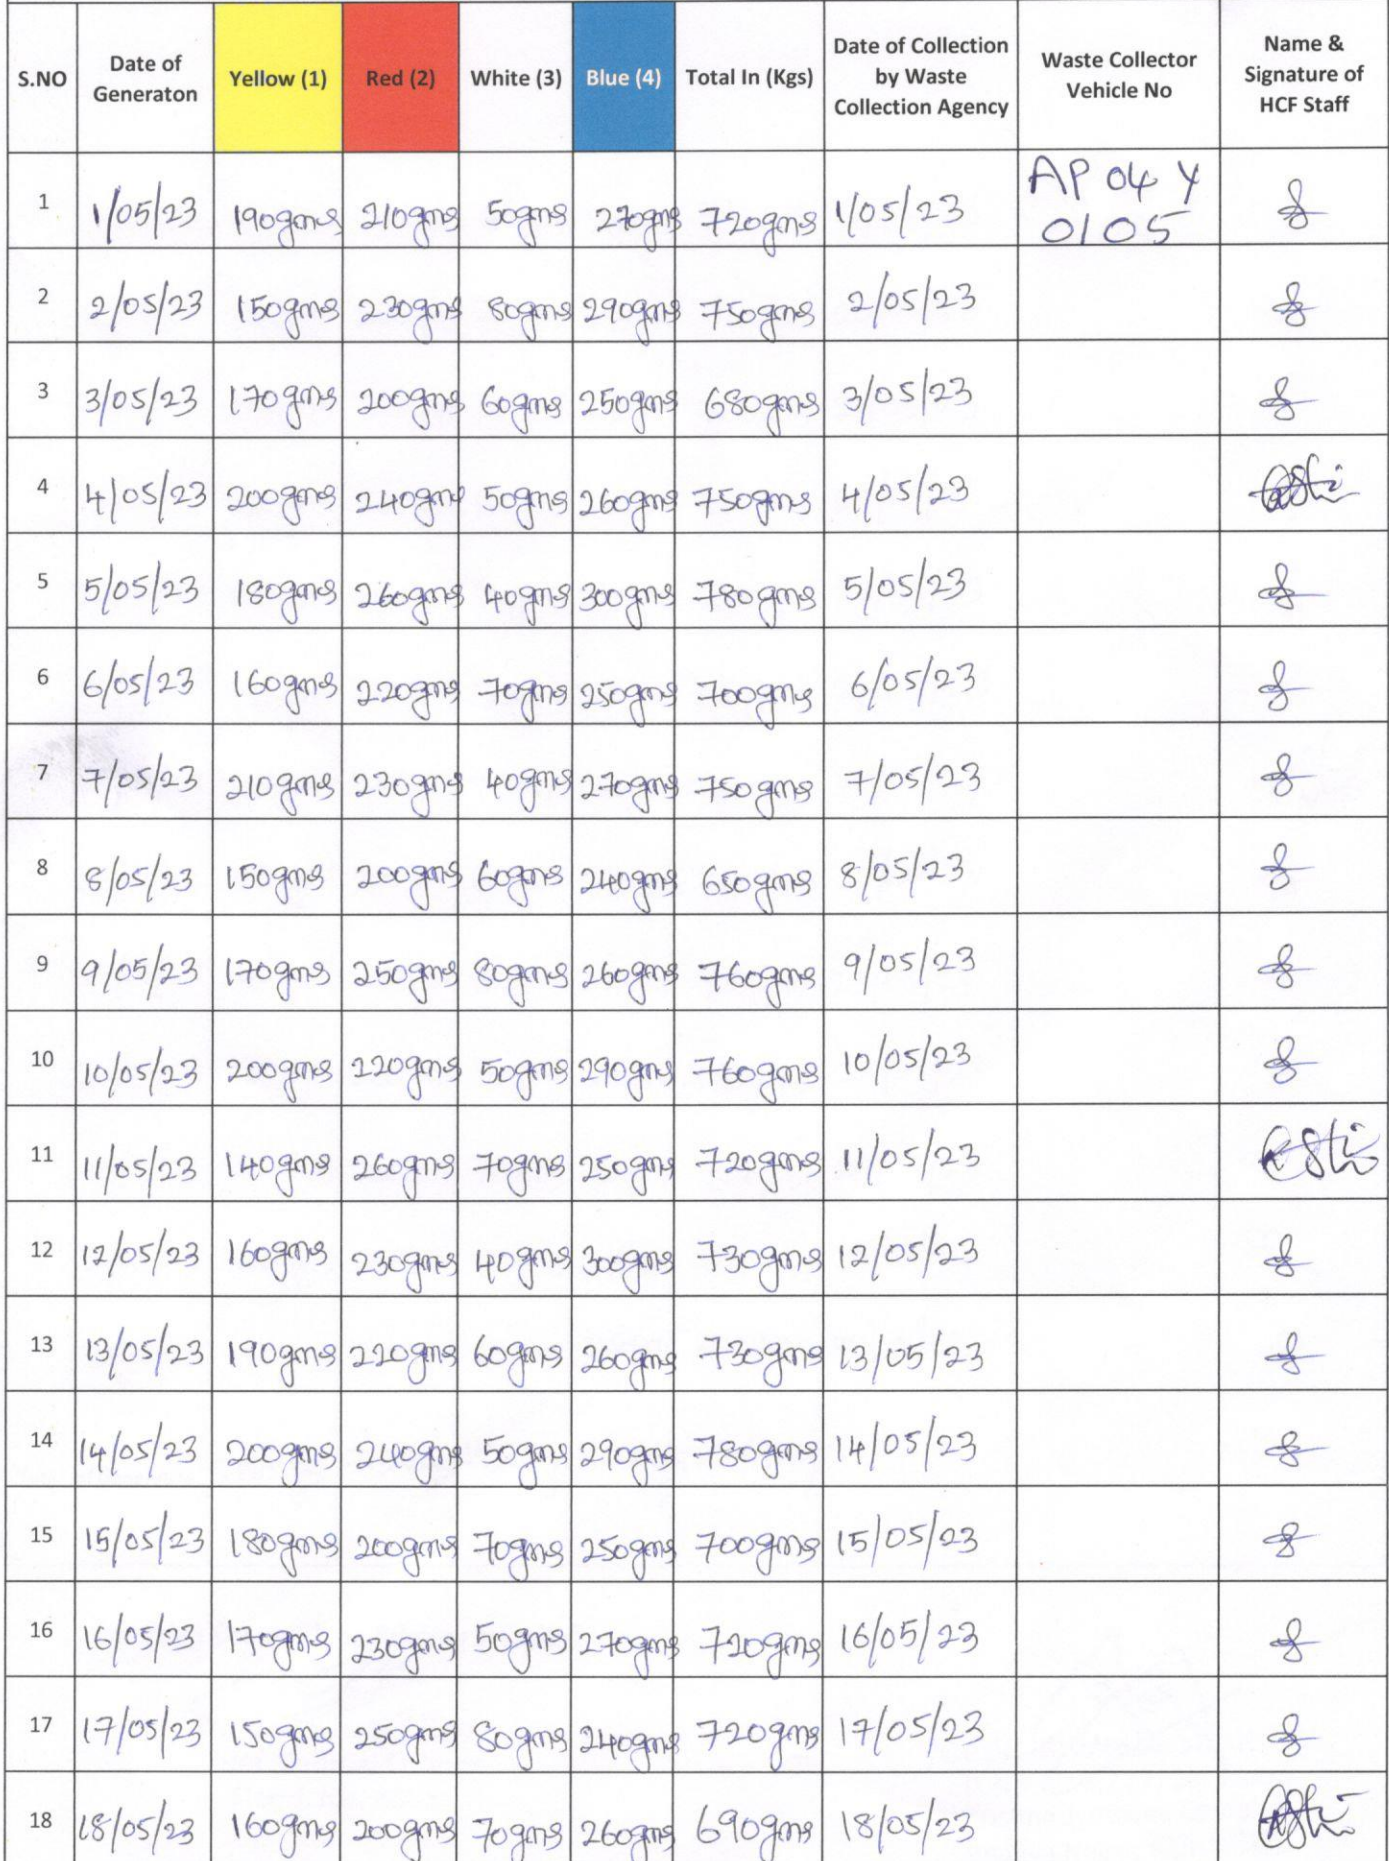 S.NO Date of Generaton Yellow (1) Red (2) White (3) Blue (4) Total In (Kgs) Date of Collection by Waste Collection Agency Waste Collector Vehicle No Name & Signature of HCF Staff
1 1/05/23 190gms 210gms 50gms 270gms 720gms 1/05/23 AP 04 Y 0105
2 2/05/23 150gms 230gms 80gms 290gms 750gms 2/05/23
3 3/05/23 170gms 200gms 60gms 250gms 680gms 3/05/23
4 4/05/23 200gms 240gms 50gms 260gms 750gms 4/05/23
5 5/05/23 180gms 260gms 40gms 300gms 780gms 5/05/23
6 6/05/23 160gms 220gms 70gms 250gms 700gms 6/05/23
7 7/05/23 210gms 230gms 40gms 270gms 750gms 7/05/23
8 8/05/23 150gms 200gms 60gms 240gms 650gms 8/05/23
9 9/05/23 170gms 250gms 80gms 260gms 760gms 9/05/23
10 10/05/23 200gms 220gms 50gms 290gms 760gms 10/05/23
11 11/05/23 140gms 260gms 70gms 250gms 720gms 11/05/23
12 12/05/23 160gms 230gms 40gms 300gms 730gms 12/05/23
13 13/05/23 190gms 220gms 60gms 260gms 730gms 13/05/23
14 14/05/23 200gms 240gms 50gms 290gms 780gms 14/05/23
15 15/05/23 180gms 200gms 70gms 250gms 700gms 15/05/23
16 16/05/23 170gms 230gms 50gms 270gms 720gms 16/05/23
17 17/05/23 150gms 250gms 80gms 240gms 720gms 17/05/23
18 18/05/23 160gms 200gms 70gms 260gms 690gms 18/05/23